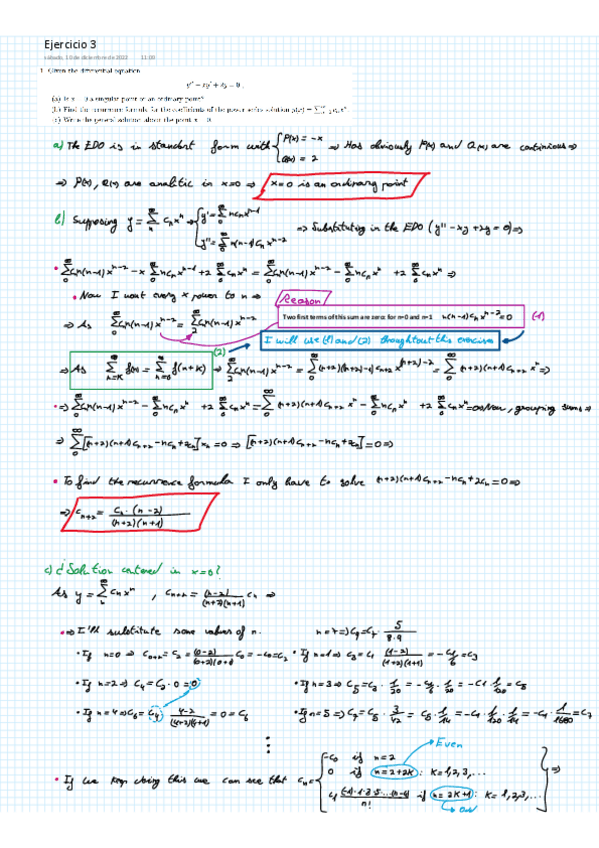 Ejercicio 3
sábado, 10 de diciembre de 2022 11:00
1. Given the differential equation
y'' − xy' + 2y = 0 ,
(a) Is x = 0 a singular point or an ordinary point?
(b) Find the recurrence formula for the coefficients of the power series solution
(c) Write the general solution about the point x = 0.
a) The EDO is in standart form with { P(x) = -x ⇒ Has obviously P(x) and Q(x) are continuous ⇒
Q(x) = 2
⇒ P(x), Q(x) are analitic in x=0 ⇒ x=0 is an ordinary point
b) Supposing y = ∑ cₙxⁿ ⇒ { y' = ∑ n cₙ xⁿ⁻¹
y'' = ∑ n(n-1) cₙ xⁿ⁻² ⇒ Substituting in the EDO (y'' - xy + 2y = 0) ⇒
• ∑ cₙn(n-1)xⁿ⁻² - x ∑ ncₙxⁿ⁻¹ + 2 ∑ cₙxⁿ = ∑ cₙn(n-1)xⁿ⁻² - ∑ ncₙxⁿ + 2 ∑ cₙxⁿ ⇒
• Now I want every x power to n ⇒ Reason
⇒ As ∑ cₙn(n-1)xⁿ⁻² = ∑ cₙn(n-1)xⁿ⁻² Two first terms of this sum are zero: for n=0 and n=1 n(n-1)cₙxⁿ⁻² = 0 (1)
I will use (1) and (2) throughtout this exercise
(2)
⇒ As ∑ f(n) = ∑ f(n+k) ⇒ ∑ cₙn(n-1)xⁿ⁻² = ∑ (n+2)(n+2-1)cₙ₊₂x⁽ⁿ⁺²⁾⁻² = ∑ (n+2)(n+1)cₙ₊₂xⁿ ⇒
• ⇒ ∑ cₙn(n-1)xⁿ⁻² - ∑ ncₙxⁿ + 2 ∑ cₙxⁿ = ∑ (n+2)(n+1)cₙ₊₂xⁿ - ∑ ncₙxⁿ + 2 ∑ cₙxⁿ = 0 Now, grouping sums ⇒
⇒ ∑ [(n+2)(n+1)cₙ₊₂ - ncₙ + 2cₙ] xₙ = 0 ⇒ [(n+2)(n+1)cₙ₊₂ - ncₙ + 2cₙ] = 0 ⇒
• To find the recurrence formula I only have to solve (n+2)(n+1)cₙ₊₂ - ncₙ + 2cₙ = 0 ⇒
⇒ cₙ₊₂ = cₙ · (n-2) / (n+2)(n+1)
c) ¿Solution centered in x=0?
As y = ∑ cₙxⁿ , cₙ₊₂ = (n-2) / (n+2)(n+1) cₙ ⇒
• ⇒ I'll substitute some values of n. n=7 ⇒ C₉ = C₇ · 5 / 8·9
• If n=0 ⇒ C₀₊₂ = C₂ = (0-2) / (0+2)(0+1) C₀ = -C₀ = C₂ • If n=1 ⇒ C₃ = C₁ (1-2) / (1+2)(1+1) = -C₁/6 = C₃
• If n=2 ⇒ C₄ = C₂ · 0 = 0 • If n=3 ⇒ C₅ = C₃ · 1/20 = -C₁/6 · 1/20 = -C₁ · 1/120 = C₅
• If n=4 ⇒ C₆ = C₄ 4-2 / (4+2)(4+1) = 0 = C₆ • If n=5 ⇒ C₇ = C₅ · 3/42 = C₅ · 1/14 = -C₁ · 1/120 · 1/14 = -C₁ · 1/1680 = C₇
Even
• If we keep doing this we can see that cₙ = { -C₀ if n=2
0 if n=2+2k : k=1,2,3,... ⇒
C₁ (-1)·1·3·5...(n-4) / n! if n=2k+1 : k=1,2,3,...
Odd